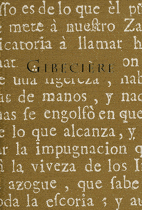 sso es de lo que èl p
mete à nuestro Za
icatoria à llamar h
nat on
GIBECIÈRE
una ligereza, hab
as de manos, y nac
as se engolfò en que
e lo que alcanza, y
ar la impugnacion q
à la viveza de los I
azogue, que sabe
oda la escoria; y au